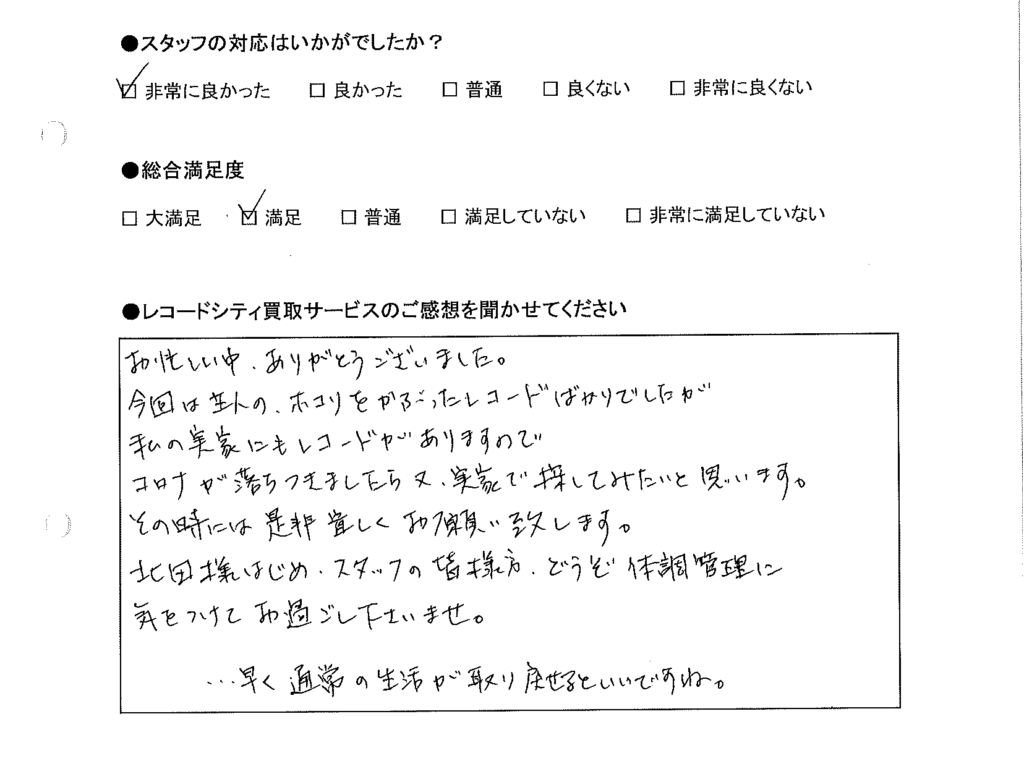 ●スタッフの対応はいかがでしたか？
☑ 非常に良かった □ 良かった □ 普通 □ 良くない □ 非常に良くない
●総合満足度
□ 大満足 ☑ 満足 □ 普通 □ 満足していない □ 非常に満足していない
●レコードシティ買取サービスのご感想を聞かせてください
お忙しい中、ありがとうございました。
今回は主人の、ホコリをかぶったレコードばかりでしたが
私の実家にもレコードがありますので
コロナが落ちつきましたら又、実家で探してみたいと思います。
その時には是非宜しくお願い致します。
北田様はじめ、スタッフの皆様方、どうぞ体調管理に
気をつけてお過ごし下さいませ。
…早く通常の生活が取り戻せるといいですね。